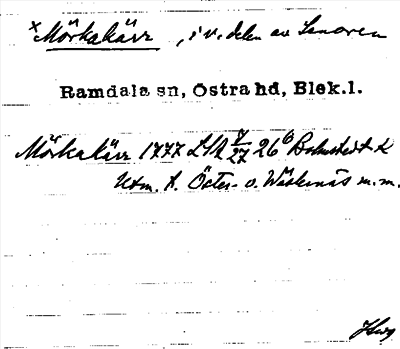 x Mörkakärr, i v. delen av Senoren
Ramdala sn, Östra hd, Blek.l.
Mörkakärr 1777 LSA 4/27 26 6 Bohnstedt K
Utm. t. Öster- o. Västernäs m.m.